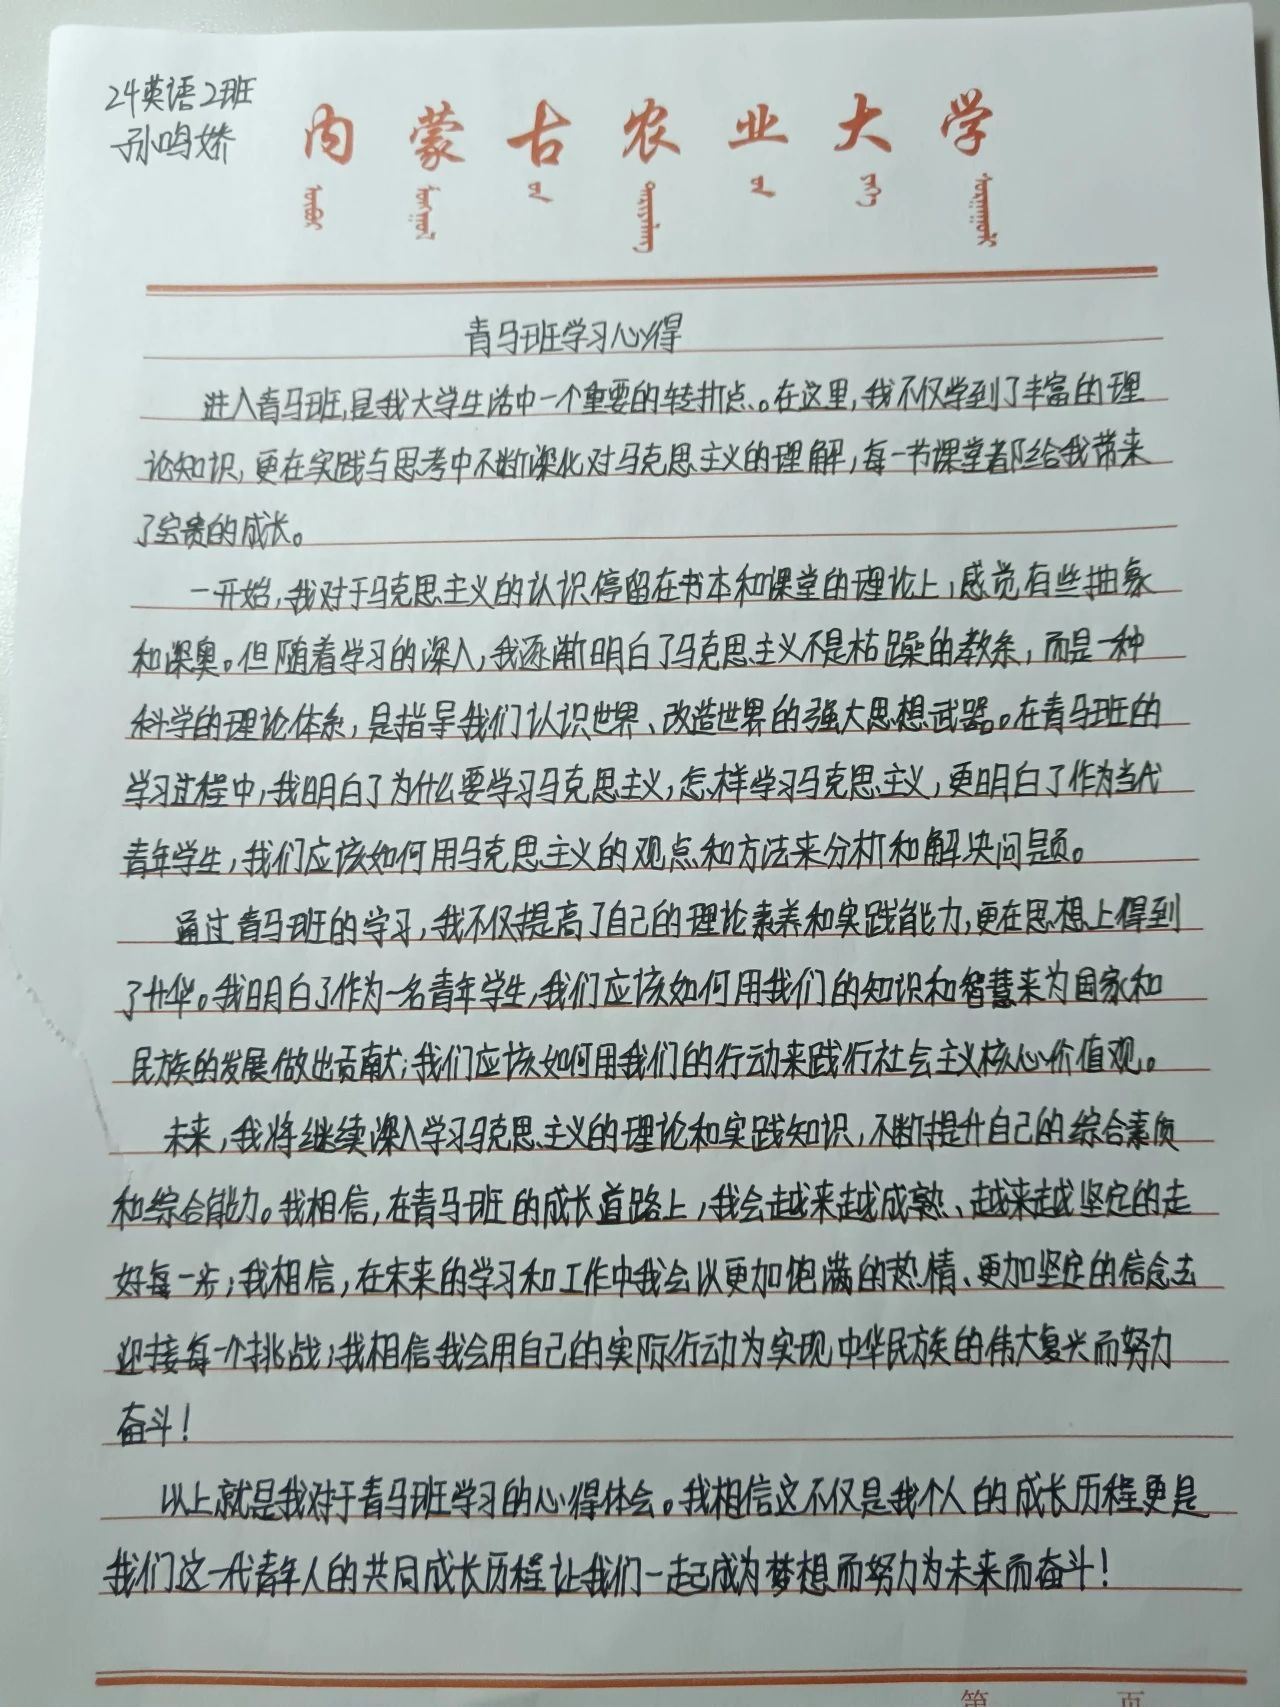 24英语2班
孙鸣娇
内蒙古农业大学
青马班学习心得
进入青马班,是我大学生活中一个重要的转折点。在这里,我不仅学到了丰富的理
论知识,更在实践与思考中不断深化对马克思主义的理解,每一节课堂都给我带来
了宝贵的成长。
一开始,我对于马克思主义的认识停留在书本和课堂的理论上,感觉有些抽象
和深奥。但随着学习的深入,我逐渐明白了马克思主义不是枯躁的教条,而是一种
科学的理论体系,是指导我们认识世界、改造世界的强大思想武器。在青马班的
学习过程中,我明白了为什么要学习马克思主义,怎样学习马克思主义,更明白了作为当代
青年学生,我们应该如何用马克思主义的观点和方法来分析和解决问题。
通过青马班的学习,我不仅提高了自己的理论素养和实践能力,更在思想上得到
了升华。我明白了作为一名青年学生,我们应该如何用我们的知识和智慧来为国家和
民族的发展做出贡献;我们应该如何用我们的行动来践行社会主义核心价值观。
未来,我将继续深入学习马克思主义的理论和实践知识,不断提升自己的综合素质
和综合能力。我相信,在青马班的成长道路上,我会越来越成熟、越来越坚定的走
好每一步;我相信,在未来的学习和工作中我会以更加饱满的热情、更加坚定的信念去
迎接每一个挑战;我相信我会用自己的实际行动为实现中华民族的伟大复兴而努力
奋斗!
以上就是我对于青马班学习的心得体会。我相信这不仅是我个人的成长历程更是
我们这一代青年人的共同成长历程让我们一起成为梦想而努力为未来而奋斗!
第 页